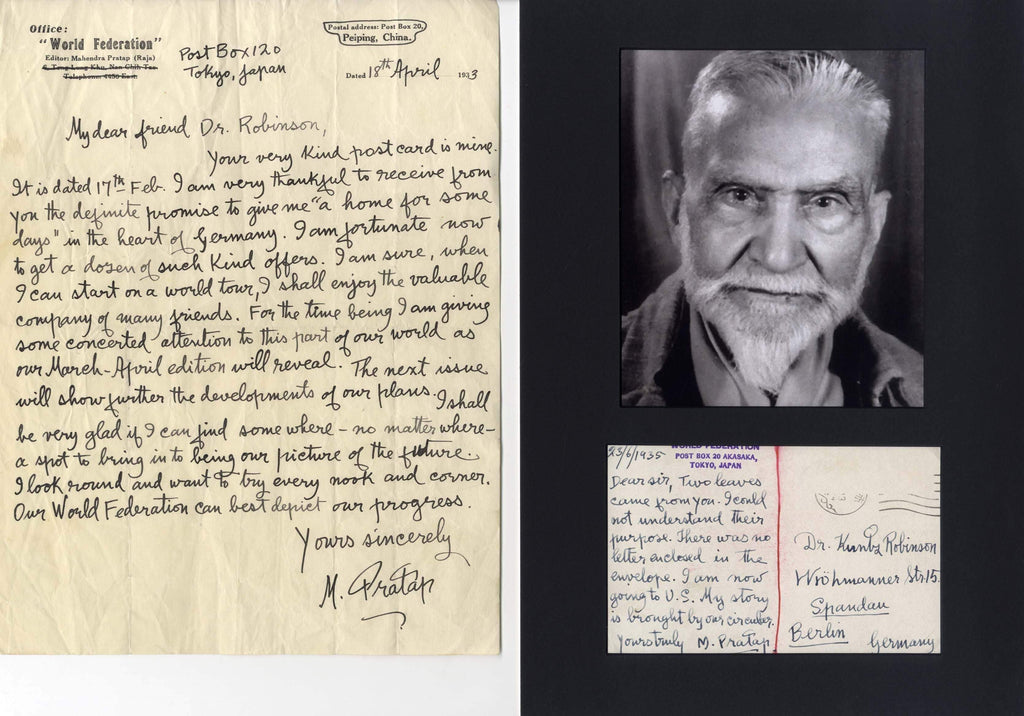 Office:
"World Federation"
Editor: Mahendra Pratap (Raja)
6, Tung Lung Khu, Nan Chih Tze.
Telephone: 4450 East.
Post Box 120
Tokyo, Japan
Postal address: Post Box 20,
Peiping, China.
Dated 18th April 1933
My dear friend Dr. Robinson,
Your very kind post card is mine.
It is dated 17th Feb. I am very thankful to receive from
you the definite promise to give me "a home for some
days" in the heart of Germany. I am fortunate now
to get a dozen of such kind offers. I am sure, when
I can start on a world tour, I shall enjoy the valuable
company of many friends. For the time being I am giving
some concerted attention to this part of our world as
our March-April edition will reveal. The next issue
will show further the developments of our plans. I shall
be very glad if I can find some where - no matter where -
a spot to bring in to being our picture of the future.
I look round and want to try every nook and corner.
Our World Federation can best depict our progress.
Yours sincerely
M. Pratap
23/6/1935
WORLD FEDERATION
POST BOX 20 AKASAKA,
TOKYO, JAPAN
Dear sir, Two leaves
came from you. I could
not understand their
purpose. There was no
letter enclosed in the
envelope. I am now
going to U.S. My story
is brought by our circular.
Yours truly M. Pratap
Dr. Kuntz Robinson
Wröhmanner Str 15
Spandau
Berlin
Germany